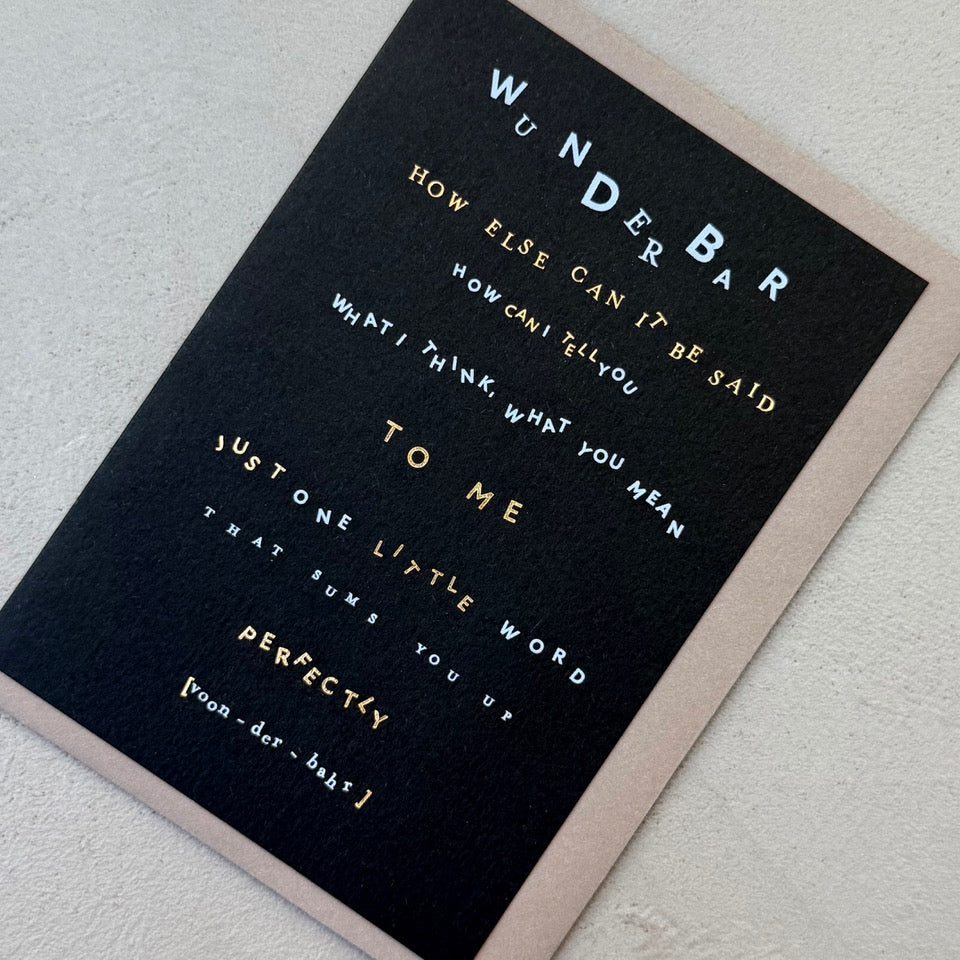 WUNDERBAR
HOW ELSE CAN IT BE SAID
HOW CAN I TELL YOU
WHAT I THINK, WHAT YOU MEAN
TO ME
JUST ONE LITTLE WORD
THAT SUMS YOU UP
PERFECTLY
[voon-der-bahr]